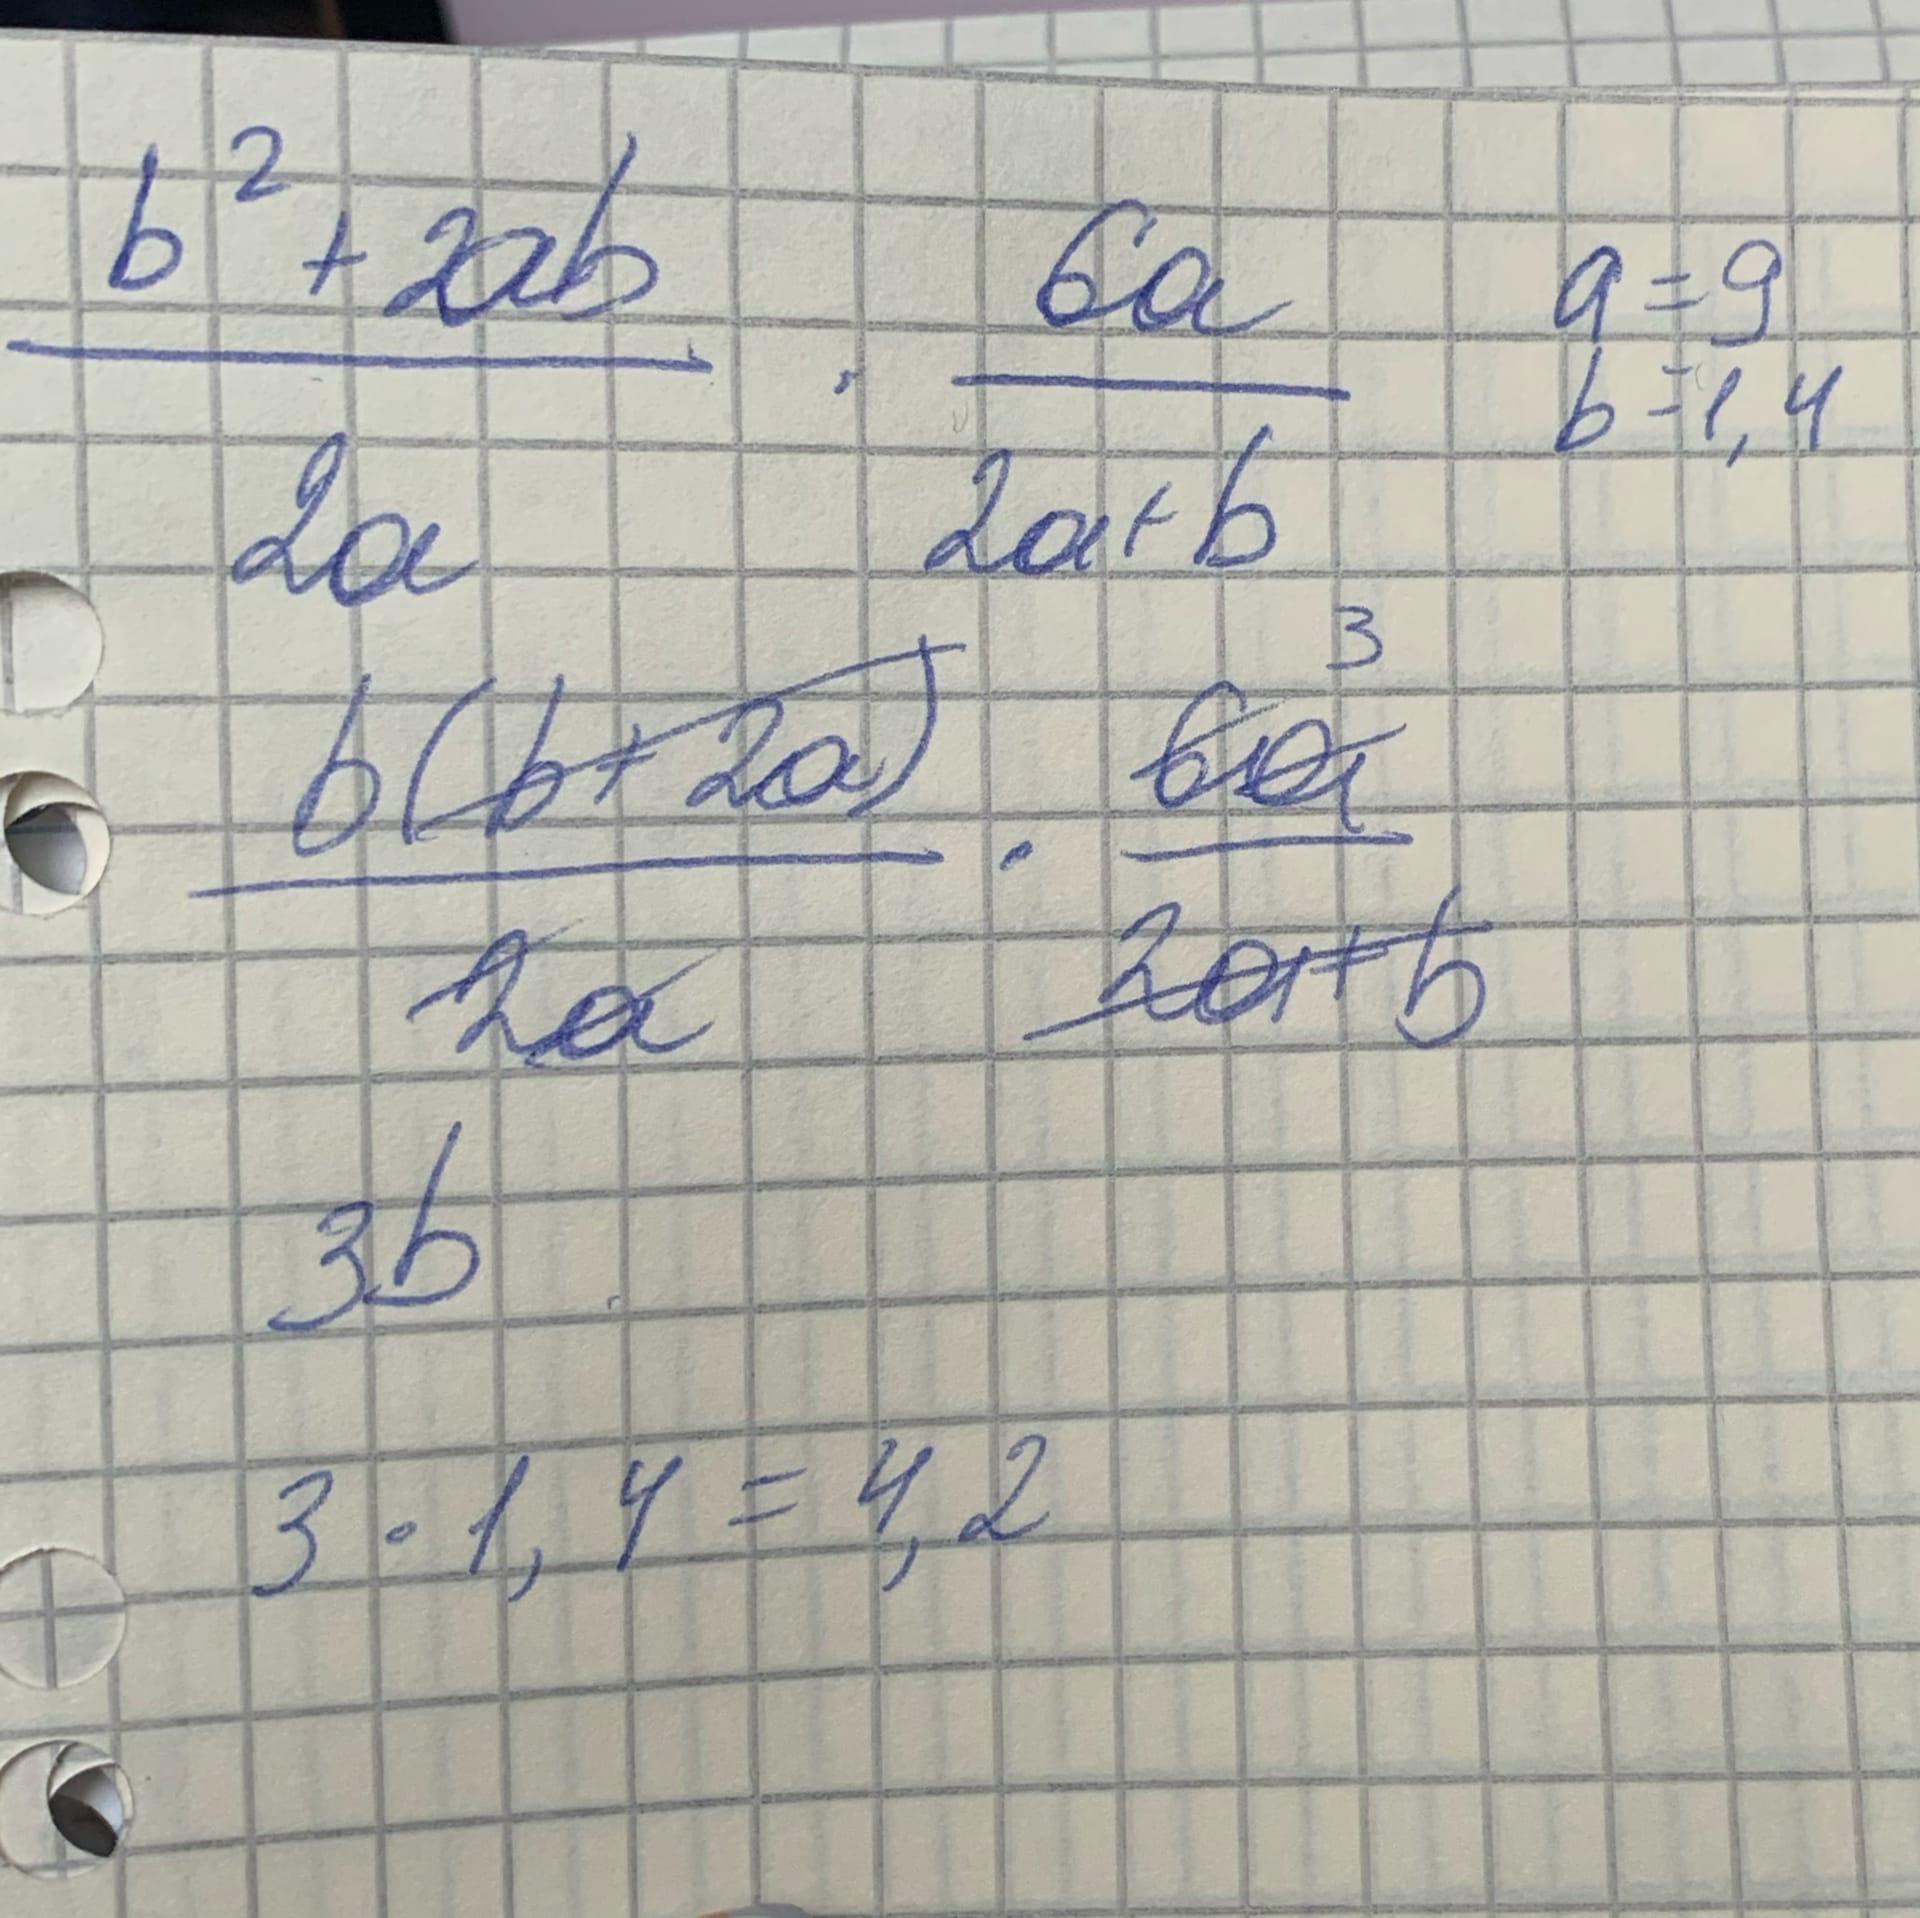 b² + 2ab · 6a a = 9
2a 2a + b b = 1,4
b(b + 2a) · 6a 3
2a 2a + b
3b
3 · 1,4 = 4,2